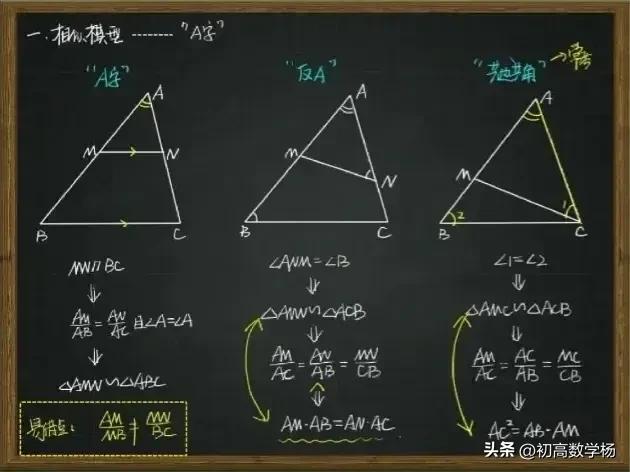 一.相似模型 -------- "A字"
"A字"
A
M
N
B
C
MN∥BC
⇓
AM/AB=AN/AC且∠A=∠A
⇓
△AMN∽△ABC
易错点: AM/MB≠MN/BC
"反A"
A
M
N
B
C
∠ANM=∠B
⇓
△AMN∽△ACB
⇓
AM/AC=AN/AB=MN/CB
⇓
AM·AB=AN·AC
"共边共角" →常考
A
M
1
2
B
C
∠1=∠2
⇓
△AMC∽△ACB
⇓
AM/AC=AC/AB=MC/CB
⇓
AC²=AB·AM
头条 @初高数学杨